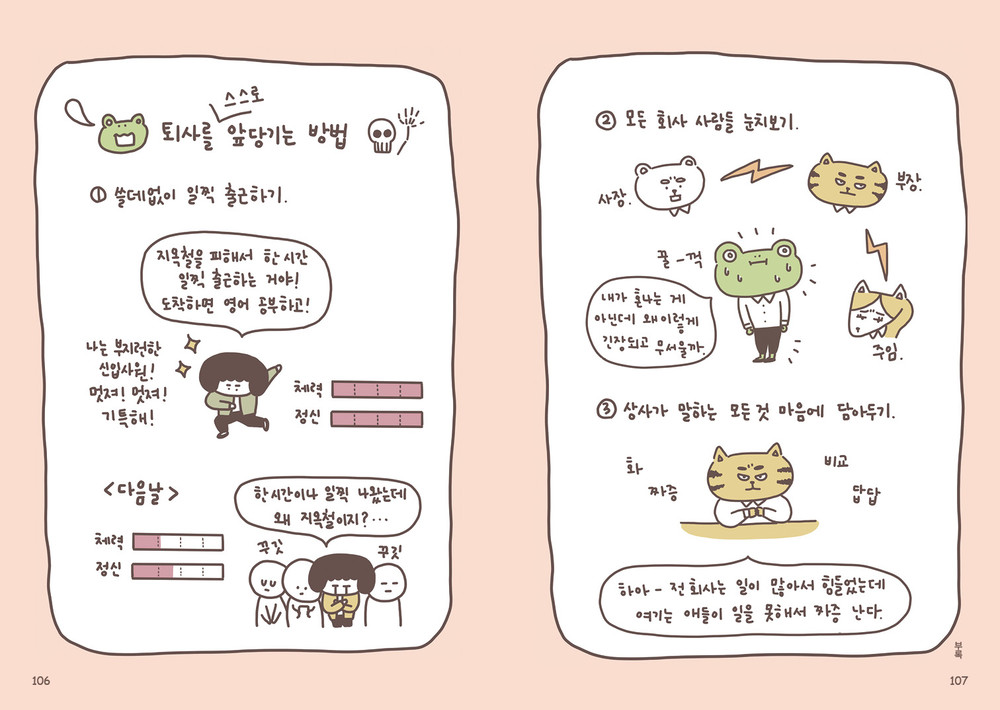 스스로
퇴사를 앞당기는 방법
① 쓸데없이 일찍 출근하기.
지옥철을 피해서 한 시간
일찍 출근하는 거야!
도착하면 영어 공부하고!
나는 부지런한
신입사원!
멋져! 멋져!
기특해!
체력
정신
<다음날>
체력
정신
한시간이나 일찍 나왔는데
왜 지옥철이지?...
꾸깃
꾸깃
106
② 모든 회사 사람들 눈치보기.
사장.
부장.
꿀-꺽
내가 혼나는 게
아닌데 왜 이렇게
긴장되고 무서울까.
주임.
③ 상사가 말하는 모든 것 마음에 담아두기.
화
짜증
비교
답답
하아 - 전 회사는 일이 많아서 힘들었는데
여기는 애들이 일을 못해서 짜증 난다.
부록
107